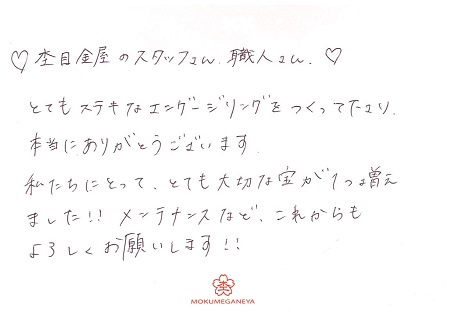 ♡ 杢目金屋のスタッフさん、職人さん、♡
とてもステキなエンゲージリングをつくって下さり、
本当にありがとうございます。
私たちにとって、とても大切な宝が1つ増え
ました!! メンテナンスなど、これからも
よろしくお願いします!!
杢
MOKUMEGANEYA